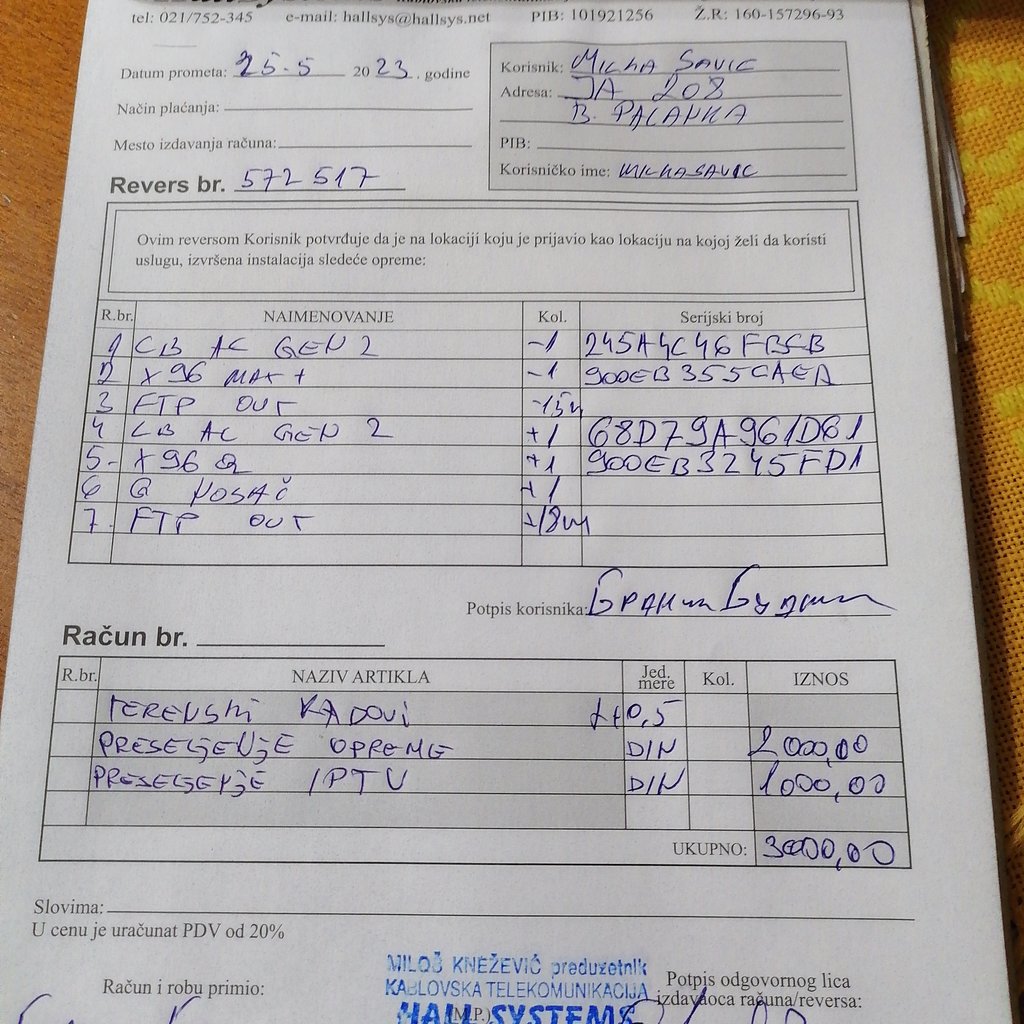 tel: 021/752-345 e-mail: hallsys@hallsys.net PIB: 101921256 Ž.R: 160-157296-93
Datum prometa: 25.5 2023. godine
Korisnik: MILKA SAVIC
Adresa: JA 208
B. PALANKA
Način plaćanja:
Mesto izdavanja računa:
PIB:
Korisničko ime: MILKASAVIC
Revers br. 572517
Ovim reversom Korisnik potvrđuje da je na lokaciji koju je prijavio kao lokaciju na kojoj želi da koristi
uslugu, izvršena instalacija sledeće opreme:
R.br. NAIMENOVANJE Kol. Serijski broj
1 LB AC GEN 2 -1 245A4C46FBCB
2 X96 MAX+ -1 900EB355CAEA
3 FTP OUT -15m
4 LB AC GEN 2 +1 68D79A961DB1
5. X96 Q +1 900EB3245FD1
6 G NOSAČ +1
7. FTP OUT +18m
Potpis korisnika:
Račun br.
R.br. NAZIV ARTIKLA Jed. mere Kol. IZNOS
TERENSKI RADOVI 0,5
PRESELJENJE OPREME DIN 2000,00
PRESELJENJE IPTV DIN 1000,00
UKUPNO: 3000,00
Slovima:
U cenu je uračunat PDV od 20%
MILOŠ KNEŽEVIĆ preduzetnik
KABLOVSKA TELEKOMUNIKACIJA
Računi robu primio:
Potpis odgovornog lica
izdavaoca računa/reversa:
(M.P.)
HALL SYSTEMS